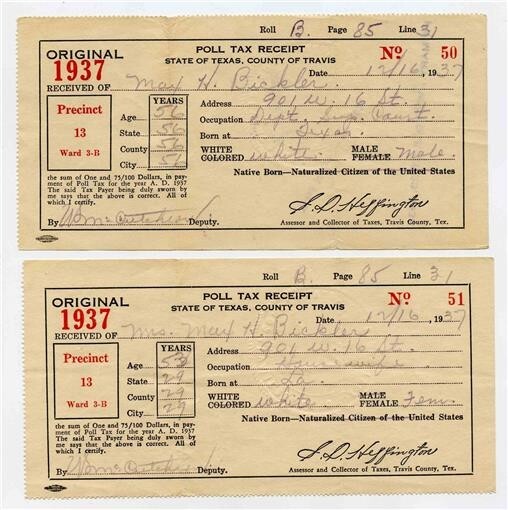 Roll B. Page 85 Line 31
ORIGINAL
1937
RECEIVED OF
POLL TAX RECEIPT
STATE OF TEXAS, COUNTY OF TRAVIS
No 50
Max H. Bickler Date 12/16, 1937
Precinct
13
Ward 3-B
YEARS
Age 56
State 56
County 56
City 56
Address 901 W. 16 St.
Occupation Dept. Sup. Court
Born at Texas
WHITE
COLORED white
MALE
FEMALE Male
Native Born—Naturalized Citizen of the United States
the sum of One and 75/100 Dollars, in pay-
ment of Poll Tax for the year A. D. 1937
The said Tax Payer being duly sworn by
me says that the above is correct. All of
which I certify.
By Deputy.
S. D. Heffington
Assessor and Collector of Taxes, Travis County, Tex.
Roll B. Page 85 Line 31
ORIGINAL
1937
RECEIVED OF
POLL TAX RECEIPT
STATE OF TEXAS, COUNTY OF TRAVIS
No 51
Mrs. Max H. Bickler 12/16, 1937
Precinct
13
Ward 3-B
YEARS
Age 53
State 29
County 29
City 29
Address 901 W. 16 St.
Occupation Housewife
Born at La
WHITE
COLORED white
MALE
FEMALE Fem.
Native Born—Naturalized Citizen of the United States
the sum of One and 75/100 Dollars, in pay-
ment of Poll Tax for the year A. D. 1937
The said Tax Payer being duly sworn by
me says that the above is correct. All of
which I certify.
By Deputy.
S. D. Heffington
Assessor and Collector of Taxes, Travis County, Tex.